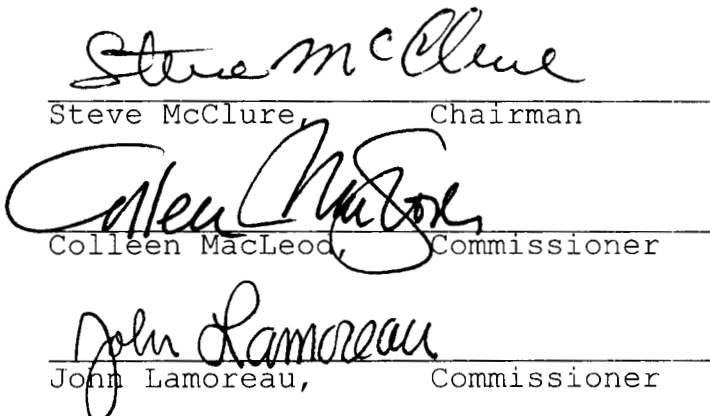 Steve McClure
Steve McClure, Chairman
Colleen MacLeod
Colleen MacLeod, Commissioner
John Lamoreau
John Lamoreau, Commissioner